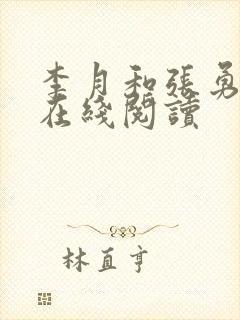 李月和张勇
在綫閱讀
林直亨